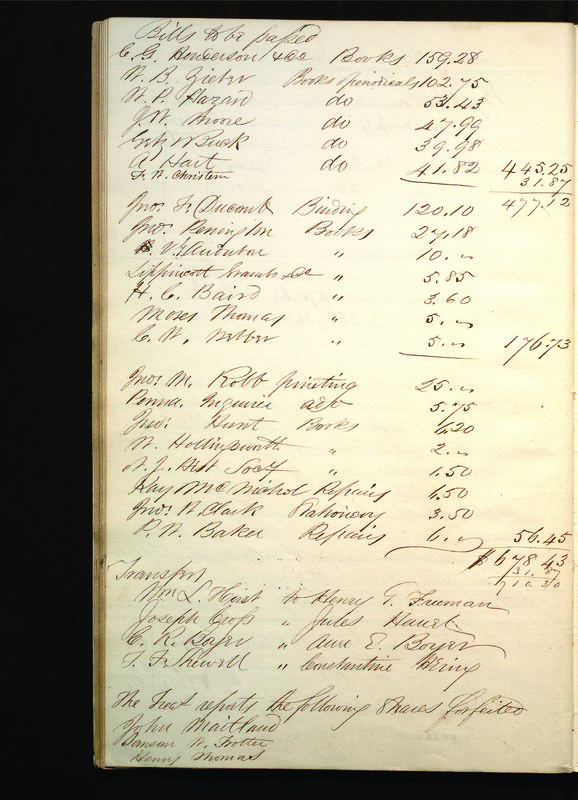 Bills to be passed
C. G. Henderson & Co Books 159.28
W. B. Zieber Books & periodicals 102.75
W. P. Hazard do 53.43
J. W. Moore do 47.99
& Buck do 39.98
A Hart do 41.82 445.25
F. W. Christern 31.87
477.12
Jno. F. Ducomb Binding 120.10
Jno. Penington Books 27.18
V. G. Audubon " 10. "
Lippincott Grambo & Co " 5.85
H. C. Baird " 3.60
Moses Thomas " 5. "
C. W. " 5. " 176.73
Jno. M. Robb printing 25. "
Penna. Inquirer adv 5.75
Jno. Hunt Books 6.20
W. Hollingsworth " 2. "
N. J. Hist Socy " 1.50
Hay McNichol Repairs 6.50
Jno. W. Clark Stationery 3.50
P. N. Baker Repairs 6. " 56.45
$678.43
31.87
710.30
Transfers
Wm L. Hirst to Henry G. Freeman
Joseph Cross " Jules Hauel
C. R. Boyer " Ann E. Boyer
T. F. Shewell " Constantine Hering
The Treas reports the following Shares forfeited
John Maitland
W. Trotter
Henry Thomas